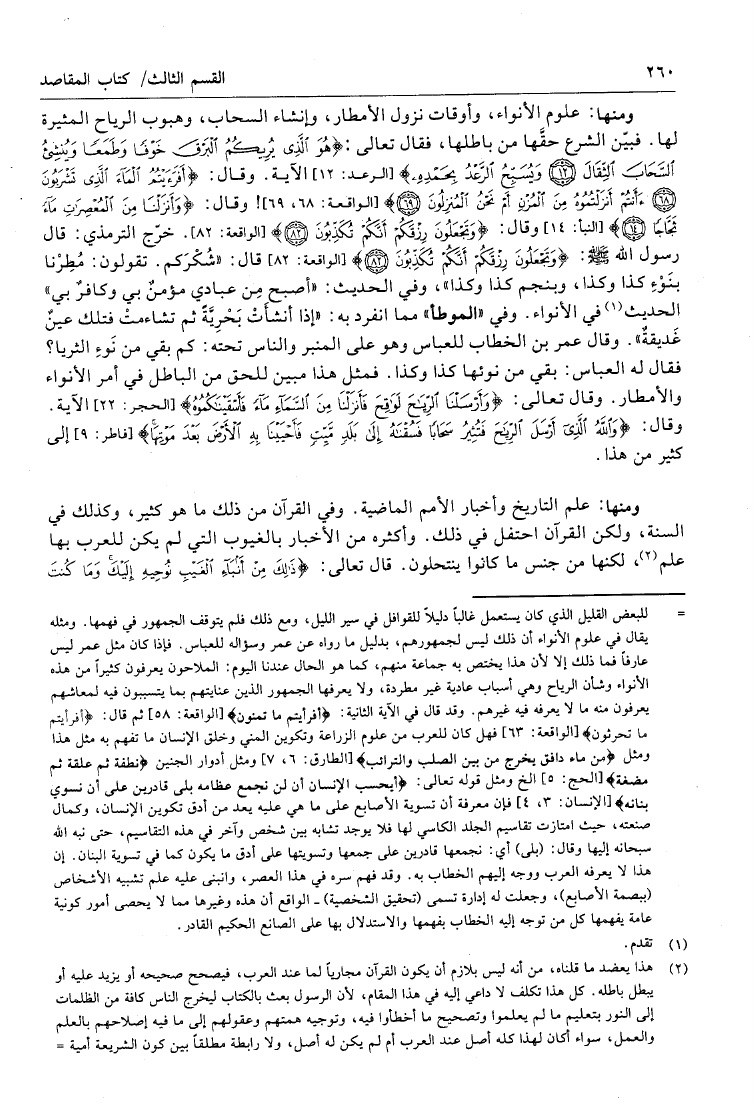 ٢٦٠
القسم الثالث/ كتاب المقاصد
ومنها: علوم الأنواء، وأوقات نزول الأمطار، وإنشاء السحاب، وهبوب الرياح المثيرة
لها. فبيّن الشرع حقَّها من باطلها، فقال تعالى: ﴿هُوَ ٱلَّذِى يُرِيكُمُ ٱلْبَرْقَ خَوْفًا وَطَمَعًا وَيُنشِئُ
ٱلسَّحَابَ ٱلثِّقَالَ ﴿١٢﴾ وَيُسَبِّحُ ٱلرَّعْدُ بِحَمْدِهِۦ﴾ [الرعد: ١٢] الآية. وقال: ﴿أَفَرَءَيْتُمُ ٱلْمَآءَ ٱلَّذِى تَشْرَبُونَ
﴿٦٨﴾ ءَأَنتُمْ أَنزَلْتُمُوهُ مِنَ ٱلْمُزْنِ أَمْ نَحْنُ ٱلْمُنزِلُونَ ﴿٦٩﴾﴾ [الواقعة: ٦٨، ٦٩]! وقال: ﴿وَأَنزَلْنَا مِنَ ٱلْمُعْصِرَٰتِ مَآءً
ثَجَّاجًا ﴿١٤﴾﴾ [النبأ: ١٤] وقال: ﴿وَتَجْعَلُونَ رِزْقَكُمْ أَنَّكُمْ تُكَذِّبُونَ ﴿٨٢﴾﴾ [الواقعة: ٨٢]. خرّج الترمذي: قال
رسول الله ﷺ: ﴿وَتَجْعَلُونَ رِزْقَكُمْ أَنَّكُمْ تُكَذِّبُونَ ﴿٨٢﴾﴾ [الواقعة: ٨٢] قال: «شُكْرَكم. تقولون: مُطِرْنا
بنَوْءِ كذا وكذا، وبنجم كذا وكذا»، وفي الحديث: «أصبح مِن عبادي مؤمنٌ بي وكافرٌ بي»
الحديث(١) في الأنواء. وفي «الموطأ» مما انفرد به: «إذا أنشأتْ بَحْرِيَّةً ثم تشاءمتْ فتلك عينٌ
غَديقةٌ». وقال عمر بن الخطاب للعباس وهو على المنبر والناس تحته: كم بقي من نَوءِ الثريا؟
فقال له العباس: بقي من نوئها كذا وكذا. فمثل هذا مبين للحق من الباطل في أمر الأنواء
والأمطار. وقال تعالى: ﴿وَأَرْسَلْنَا ٱلرِّيَٰحَ لَوَٰقِحَ فَأَنزَلْنَا مِنَ ٱلسَّمَآءِ مَآءً فَأَسْقَيْنَٰكُمُوهُ﴾ [الحجر: ٢٢] الآية.
وقال: ﴿وَٱللَّهُ ٱلَّذِىٓ أَرْسَلَ ٱلرِّيَٰحَ فَتُثِيرُ سَحَابًا فَسُقْنَٰهُ إِلَىٰ بَلَدٍ مَّيِّتٍ فَأَحْيَيْنَا بِهِ ٱلْأَرْضَ بَعْدَ مَوْتِهَا﴾ [فاطر: ٩] إلى
كثير من هذا.
ومنها: علم التاريخ وأخبار الأمم الماضية. وفي القرآن من ذلك ما هو كثير، وكذلك في
السنة، ولكن القرآن احتفل في ذلك. وأكثره من الأخبار بالغيوب التي لم يكن للعرب بها
علم(٢)، لكنها من جنس ما كانوا ينتحلون. قال تعالى: ﴿ذَٰلِكَ مِنْ أَنۢبَآءِ ٱلْغَيْبِ نُوحِيهِ إِلَيْكَ وَمَا كُنتَ
= للبعض القليل الذي كان يستعمل غالباً دليلاً للقوافل في سير الليل، ومع ذلك فلم يتوقف الجمهور في فهمها. ومثله
يقال في علوم الأنواء أن ذلك ليس لجمهورهم، بدليل ما رواه عن عمر وسؤاله للعباس. فإذا كان مثل عمر ليس
عارفاً فما ذلك إلا لأن هذا يختص به جماعة منهم، كما هو الحال عندنا اليوم: الملاحون يعرفون كثيراً من هذه
الأنواء وشأن الرياح وهي أسباب عادية غير مطردة، ولا يعرفها الجمهور الذين عنايتهم بما يتسببون فيه لمعاشهم
يعرفون منه ما لا يعرفه فيه غيرهم. وقد قال في الآية الثانية: ﴿أفرأيتم ما تمنون﴾ [الواقعة: ٥٨] ثم قال: ﴿أفرأيتم
ما تحرثون﴾ [الواقعة: ٦٣] فهل كان للعرب من علوم الزراعة وتكوين المني وخلق الإنسان ما تفهم به مثل هذا
ومثل ﴿من ماء دافق يخرج من بين الصلب والترائب﴾ [الطارق: ٦، ٧] ومثل أدوار الجنين ﴿نطفة ثم علقة ثم
مضغة﴾ [الحج: ٥] الخ ومثل قوله تعالى: ﴿أيحسب الإنسان أن لن نجمع عظامه بلى قادرين على أن نسوي
بنانه﴾ [الإنسان: ٣، ٤] فإن معرفة أن تسوية الأصابع على ما هي عليه يعد من أدق تكوين الإنسان، وكمال
صنعته، حيث امتازت تقاسيم الجلد الكاسي لها فلا يوجد تشابه بين شخص وآخر في هذه التقاسيم، حتى نبه الله
سبحانه إليها وقال: (بلى) أي: نجمعها قادرين على جمعها وتسويتها على أدق ما يكون كما في تسوية البنان. إن
هذا لا يعرفه العرب ووجه إليهم الخطاب به. وقد فهم سره في هذا العصر، وانبنى عليه علم تشبيه الأشخاص
(ببصمة الأصابع)، وجعلت له إدارة تسمى (تحقيق الشخصية) ـ الواقع أن هذه وغيرها مما لا يحصى أمور كونية
عامة يفهمها كل من توجه إليه الخطاب بفهمها والاستدلال بها على الصانع الحكيم القادر.
(١) تقدم.
(٢) هذا يعضد ما قلناه، من أنه ليس بلازم أن يكون القرآن مجارياً لما عند العرب، فيصحح صحيحه أو يزيد عليه أو
يبطل باطله. كل هذا تكلف لا داعي إليه في هذا المقام، لأن الرسول بعث بالكتاب ليخرج الناس كافة من الظلمات
إلى النور بتعليم ما لم يعلموا وتصحيح ما أخطأوا فيه، وتوجيه همتهم وعقولهم إلى ما فيه إصلاحهم بالعلم
والعمل، سواء أكان لهذا كله أصل عند العرب أم لم يكن له أصل، ولا رابطة مطلقاً بين كون الشريعة أمية =